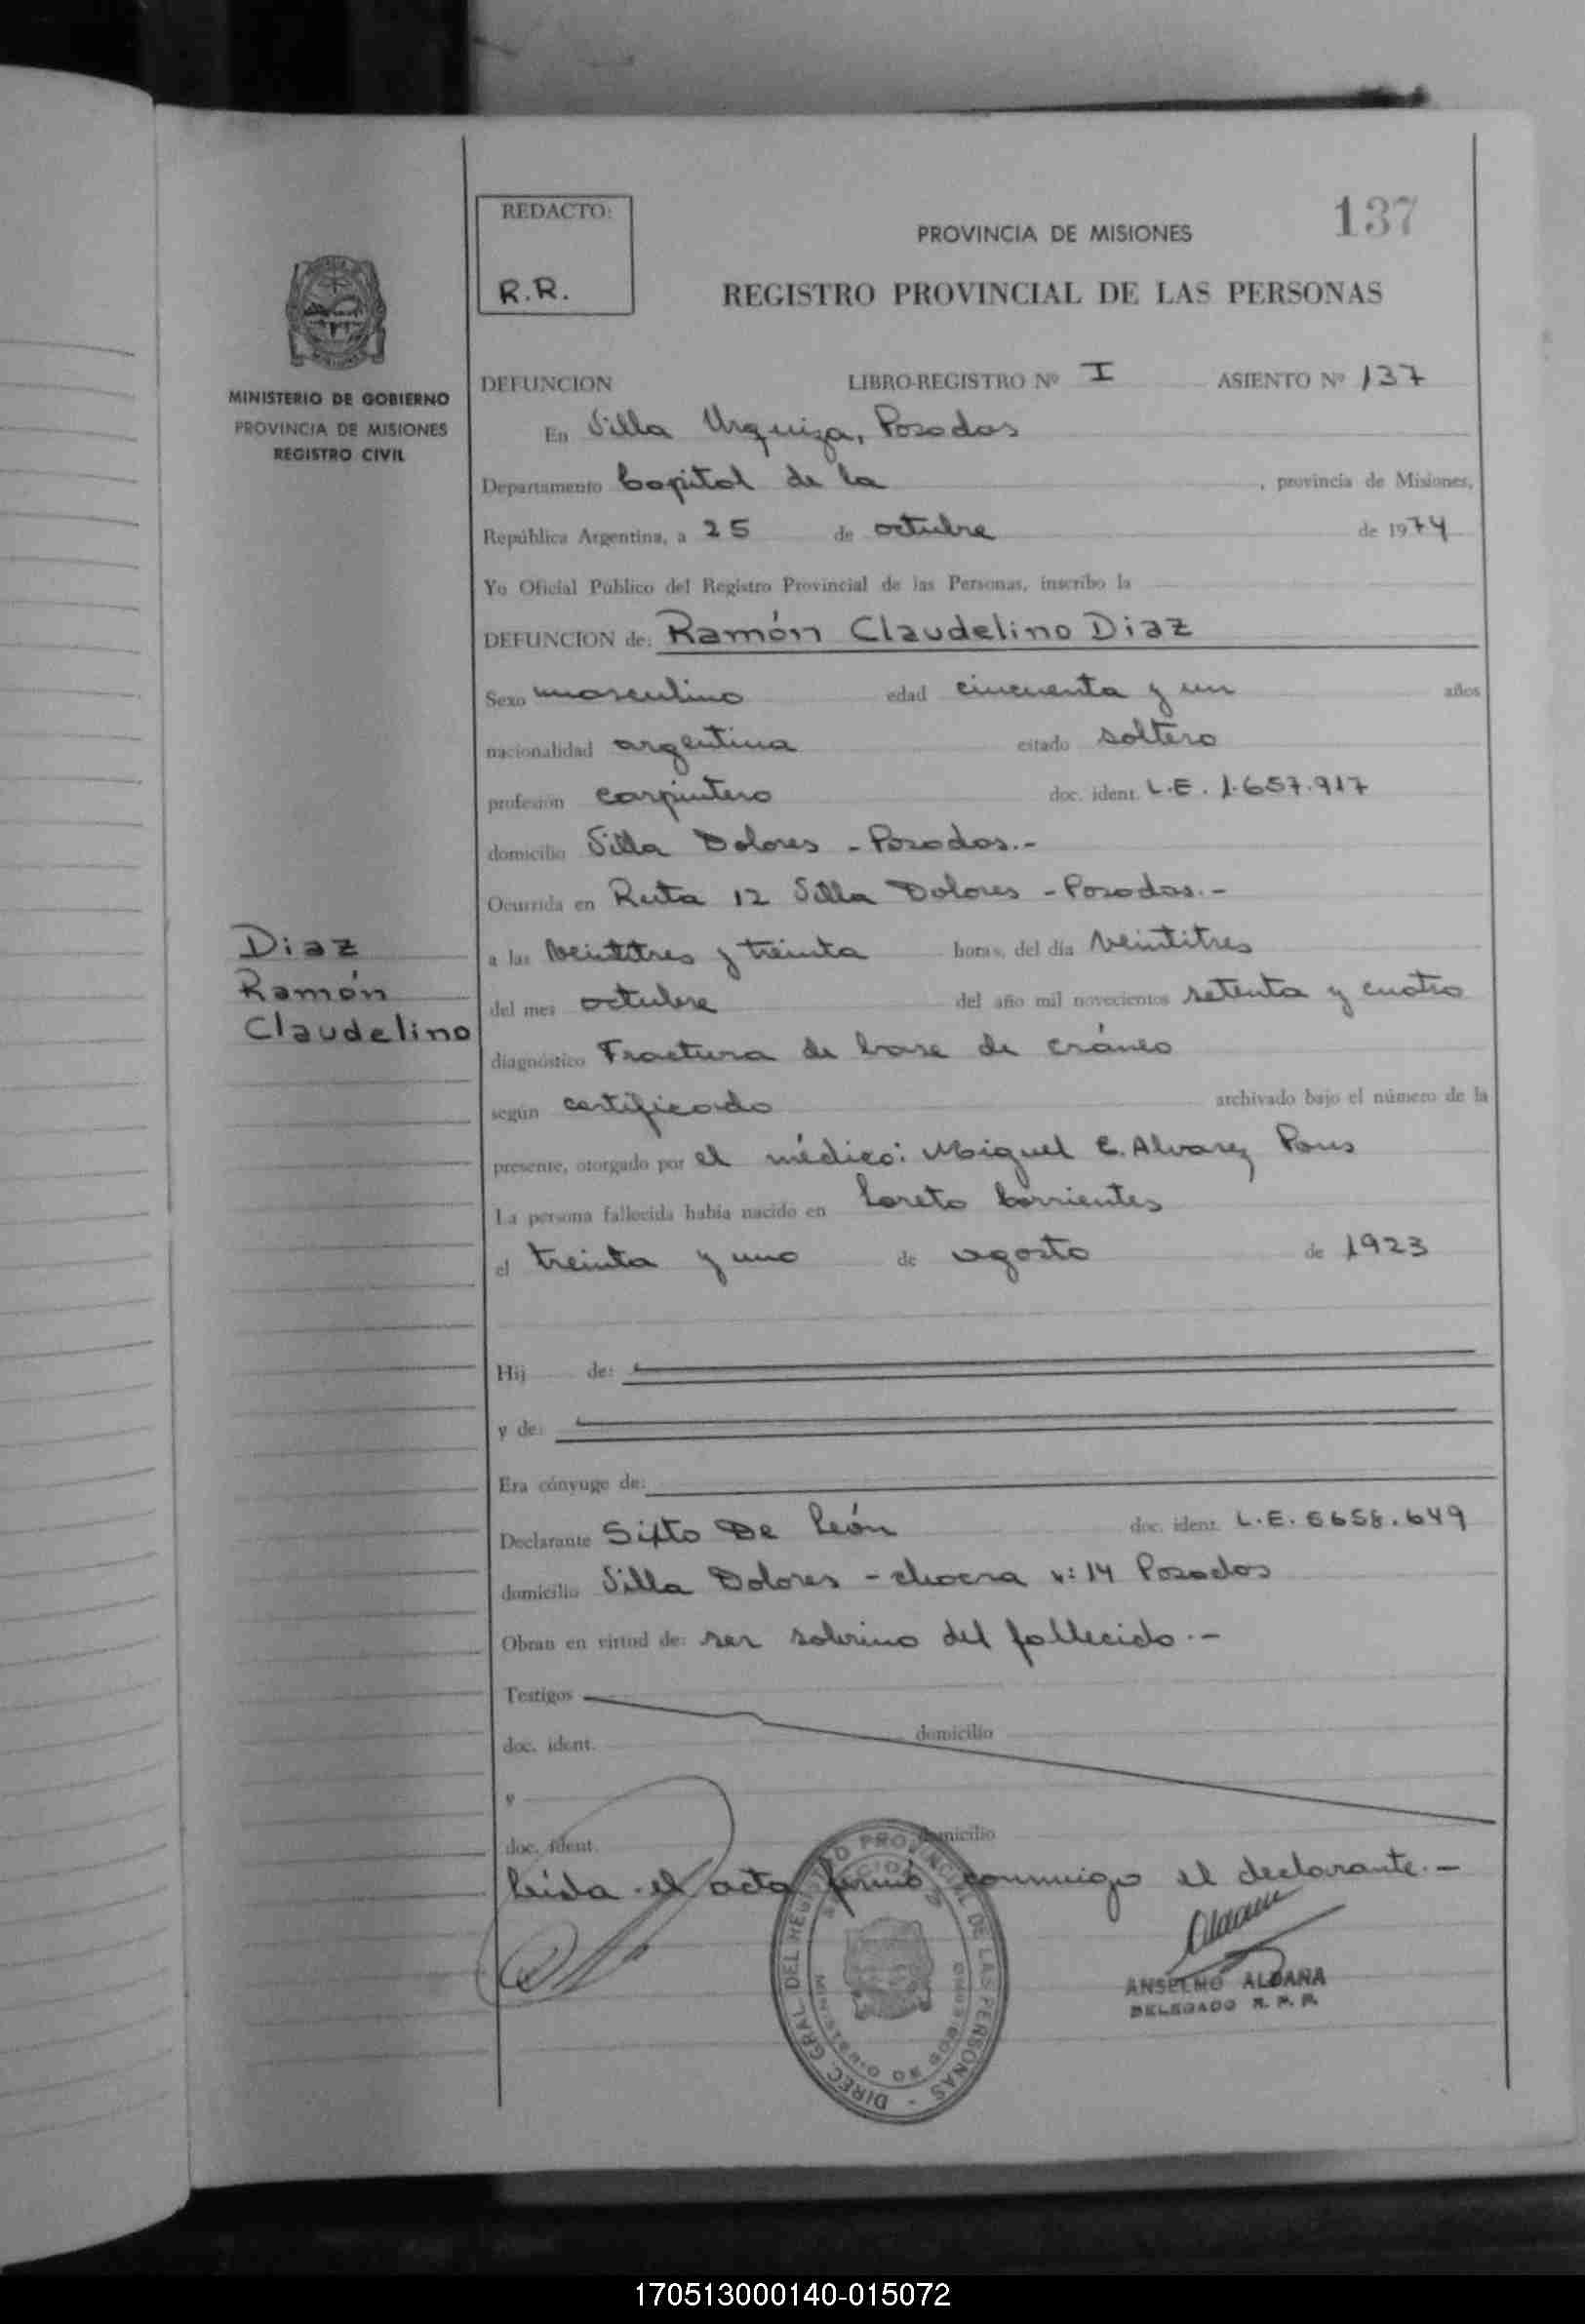 REDACTO:
R.R.
137
PROVINCIA DE MISIONES
REGISTRO PROVINCIAL DE LAS PERSONAS
MINISTERIO DE GOBIERNO
PROVINCIA DE MISIONES
REGISTRO CIVIL
DEFUNCION LIBRO-REGISTRO Nº I ASIENTO Nº 137
En Villa Urquiza, Posadas
Departamento Capital de la , provincia de Misiones,
República Argentina, a 25 de octubre de 1974
Yo Oficial Público del Registro Provincial de las Personas, inscribo la
DEFUNCION de: Ramón Claudelino Diaz
Sexo masculino edad cincuenta y un años
nacionalidad argentina estado soltero
profesión carpintero doc. ident. L.E. 1.657.917
domicilio Villa Dolores - Posadas.-
Ocurrida en Ruta 12 Villa Dolores - Posadas.-
Diaz
Ramón
Claudelino
a las veintitres y treinta horas, del día veintitres
del mes octubre del año mil novecientos setenta y cuatro
diagnóstico Fractura de base de cráneo
según certificado archivado bajo el número de la
presente, otorgado por el médico: Miguel C. Alvarez Pons
La persona fallecida había nacido en Loreto Corrientes
el treinta y uno de agosto de 1923
Hij de:
y de:
Era cónyuge de:
Declarante Sixto De León doc. ident. L.E. 5658.649
domicilio Villa Dolores - chacra n: 14 Posadas
Obran en virtud de: ser sobrino del fallecido.-
Testigos
doc. ident. domicilio
y
doc. ident. domicilio
Leida el acta firmó conmigo el declarante.-
DIREC. GRAL. DEL REGISTRO PROVINCIAL DE LAS PERSONAS -
MINISTERIO DE GOBIERNO
ANSELMO ALDANA
DELEGADO R. P. P.
170513000140-015072